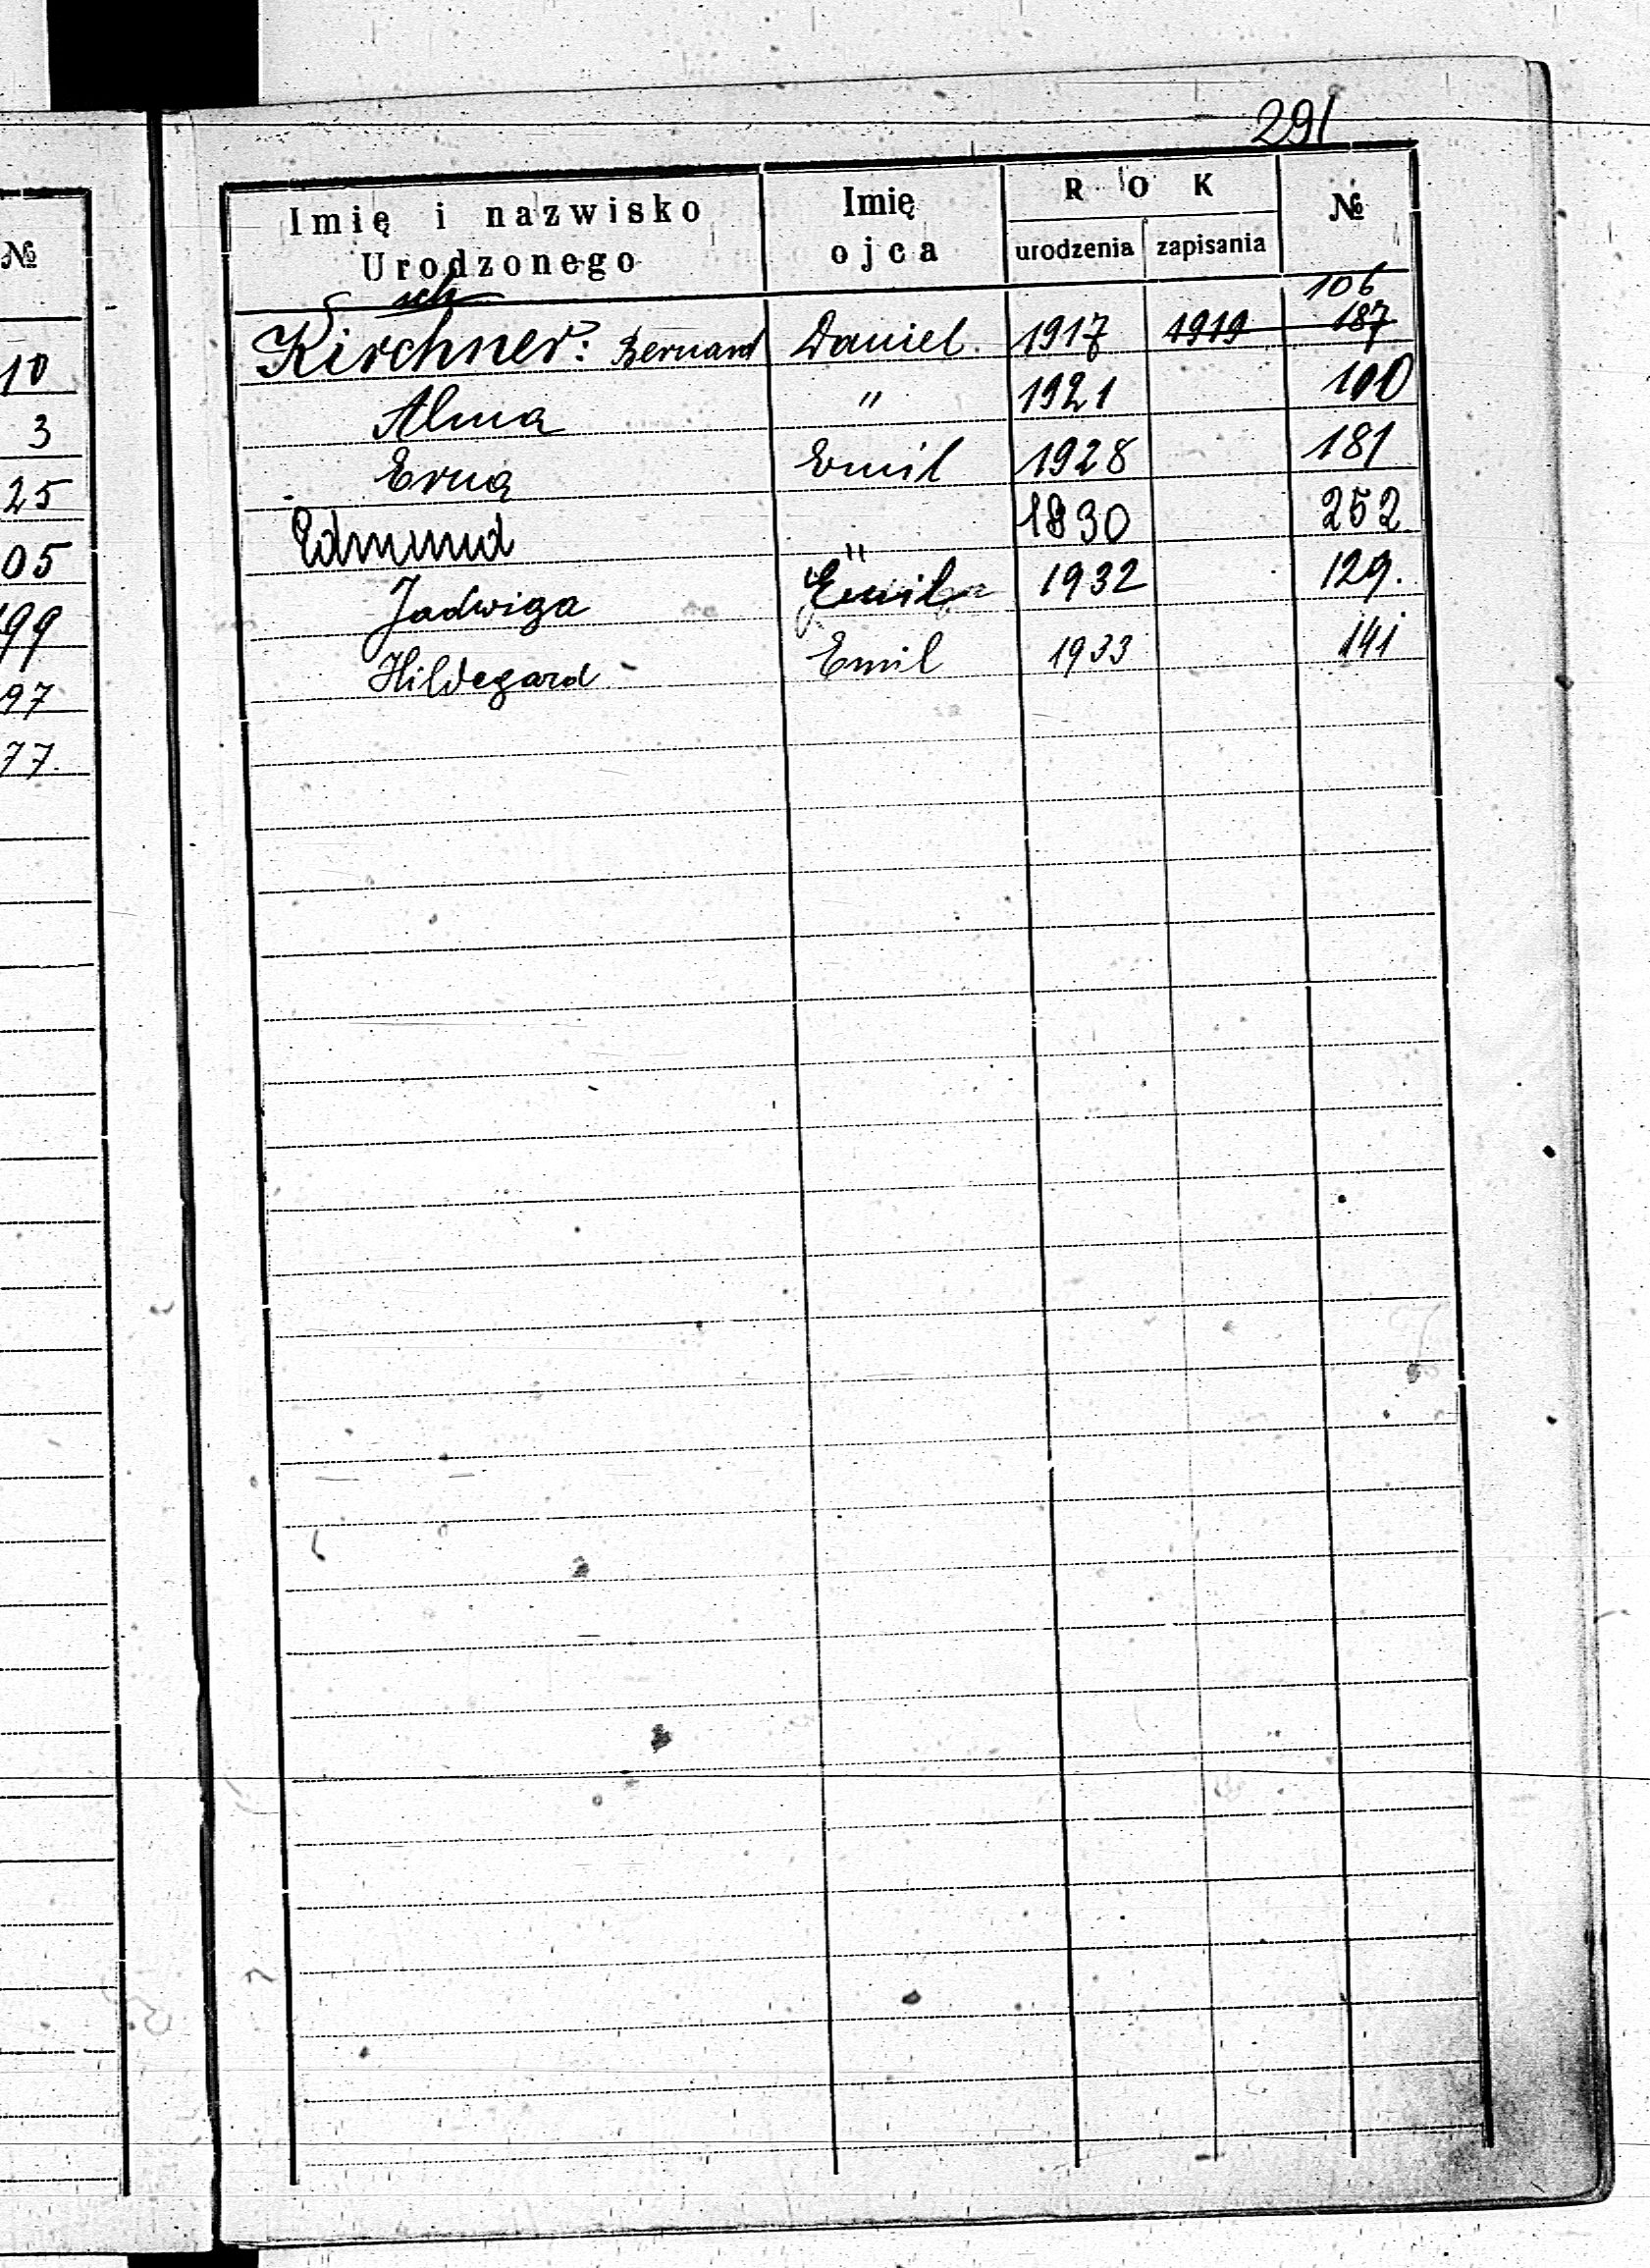 291
№
Imię i nazwisko Urodzonego
Imię ojca
ROK
urodzenia zapisania
№
sch
106
Kirchner: Bernard Daniel. 1917 1919 187
Alma " 1921 100
Erna Emil 1928 181
Edmund " 1930 252
Jadwiga Emil 1932 129.
Hildegard Emil 1933 141
10
3
25
05
99
97
77.